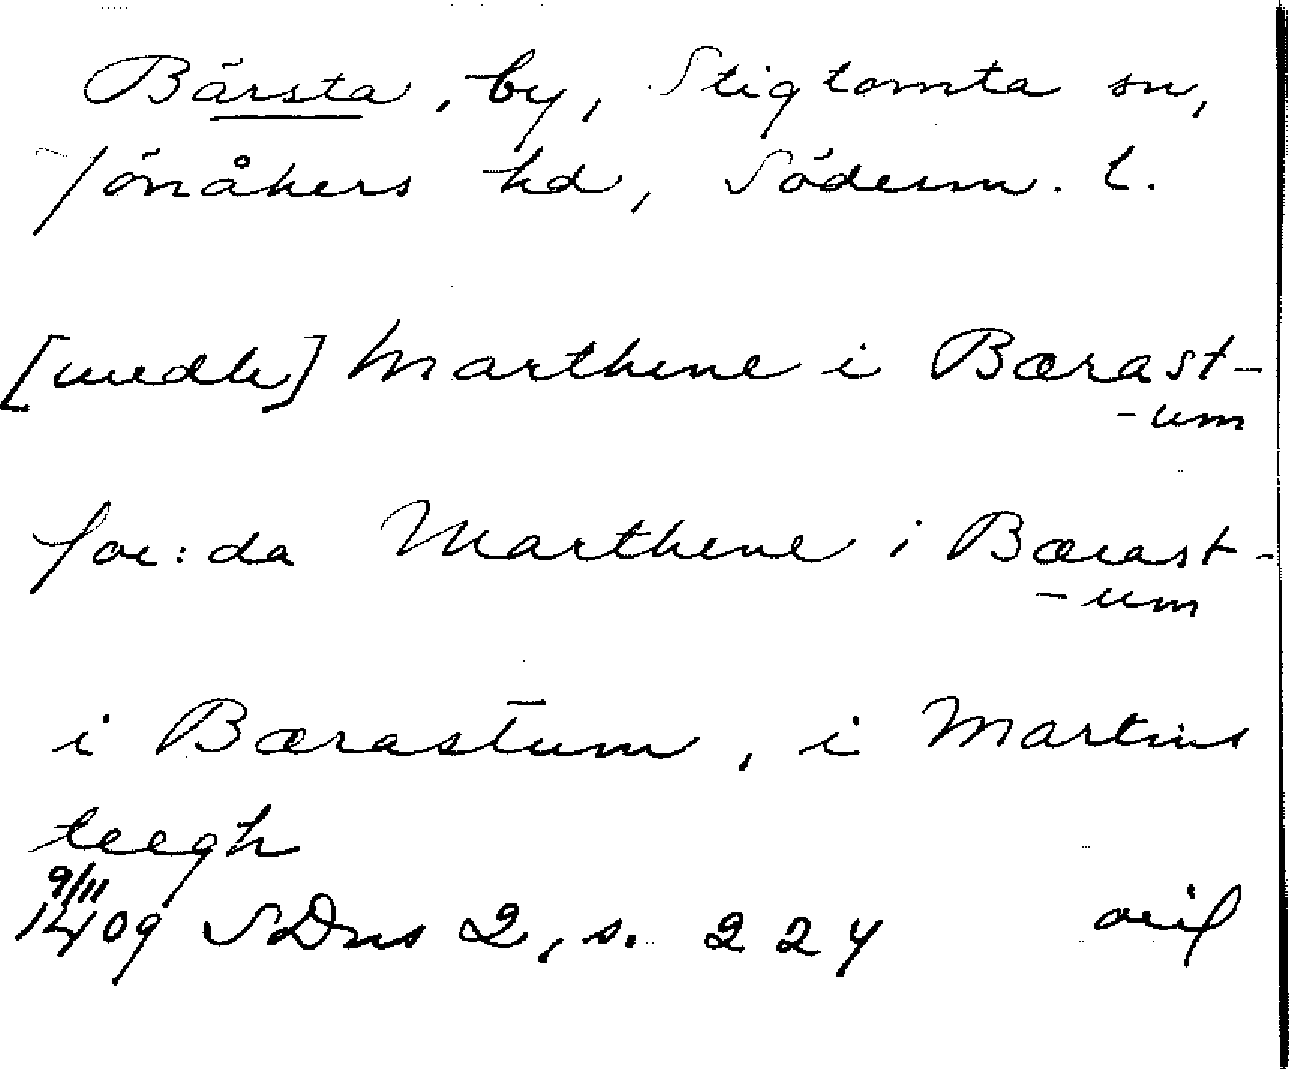 Bärsta, by, Stigtomta sn,
Jönåkers hd, Söderm. l.
[medh] Marthene i Bærast-
-um
for:da Marthene i Bærast-
-um
i Bærastum, i Martins
teegh
9/11
1409 SDns 2, s. 224 orig